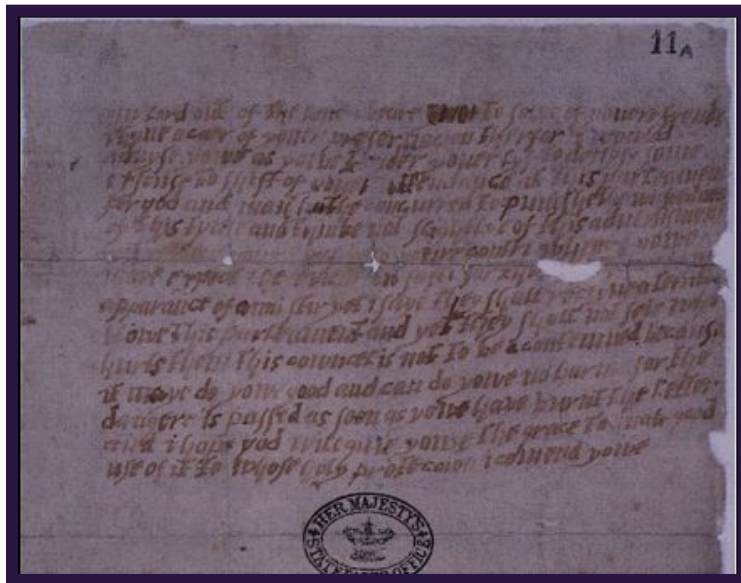 11A
lord out of the love i beare to some of youere frends
i have a caer of youer preservacion therfor i would
advyse yowe as yowe tender youer lyf to devyse some
excuse to shift of youer attendance at this parleament
for god and man hathe concurred to punishe the wickednes
of this tyme and thinke not slightlye of this advertisment
youre contri yowe
maye expect the event in safti for
apparance of anni stir yet i saye they shall receyve a terrible
blowe this parleament and yet they shall not seie who
hurts them this cowncel is not to be contemned because
it maye do yowe good and can do yowe no harme for the
dangere is passed as soon as yowe have burnt the letter
and i hope god will give yowe the grace to mak good
use of it to whose holy proteccion i comend yowe
HER MAJESTY'S
STATE PAPER OFFICE